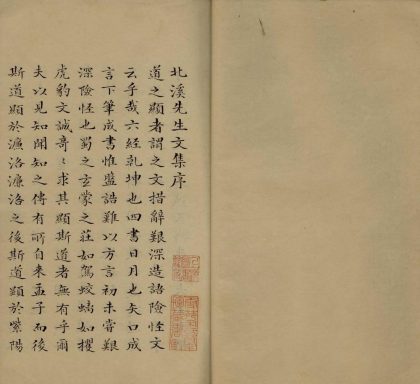 北溪先生文集序
道之顯者謂之文措辭艱深造語險怪文
云乎哉六經乾坤也四書日月也矢口成
言下筆成書惟盤誥難以方言初未嘗艱
深險怪也蜀之玄蒙之莊如駕蛟螭如攫
虎豹文誠奇〻求其顯斯道者無有乎爾
夫以見知聞知之傳有所自来孟子而後
斯道顯於濂洛濂洛之後斯道顯於紫陽